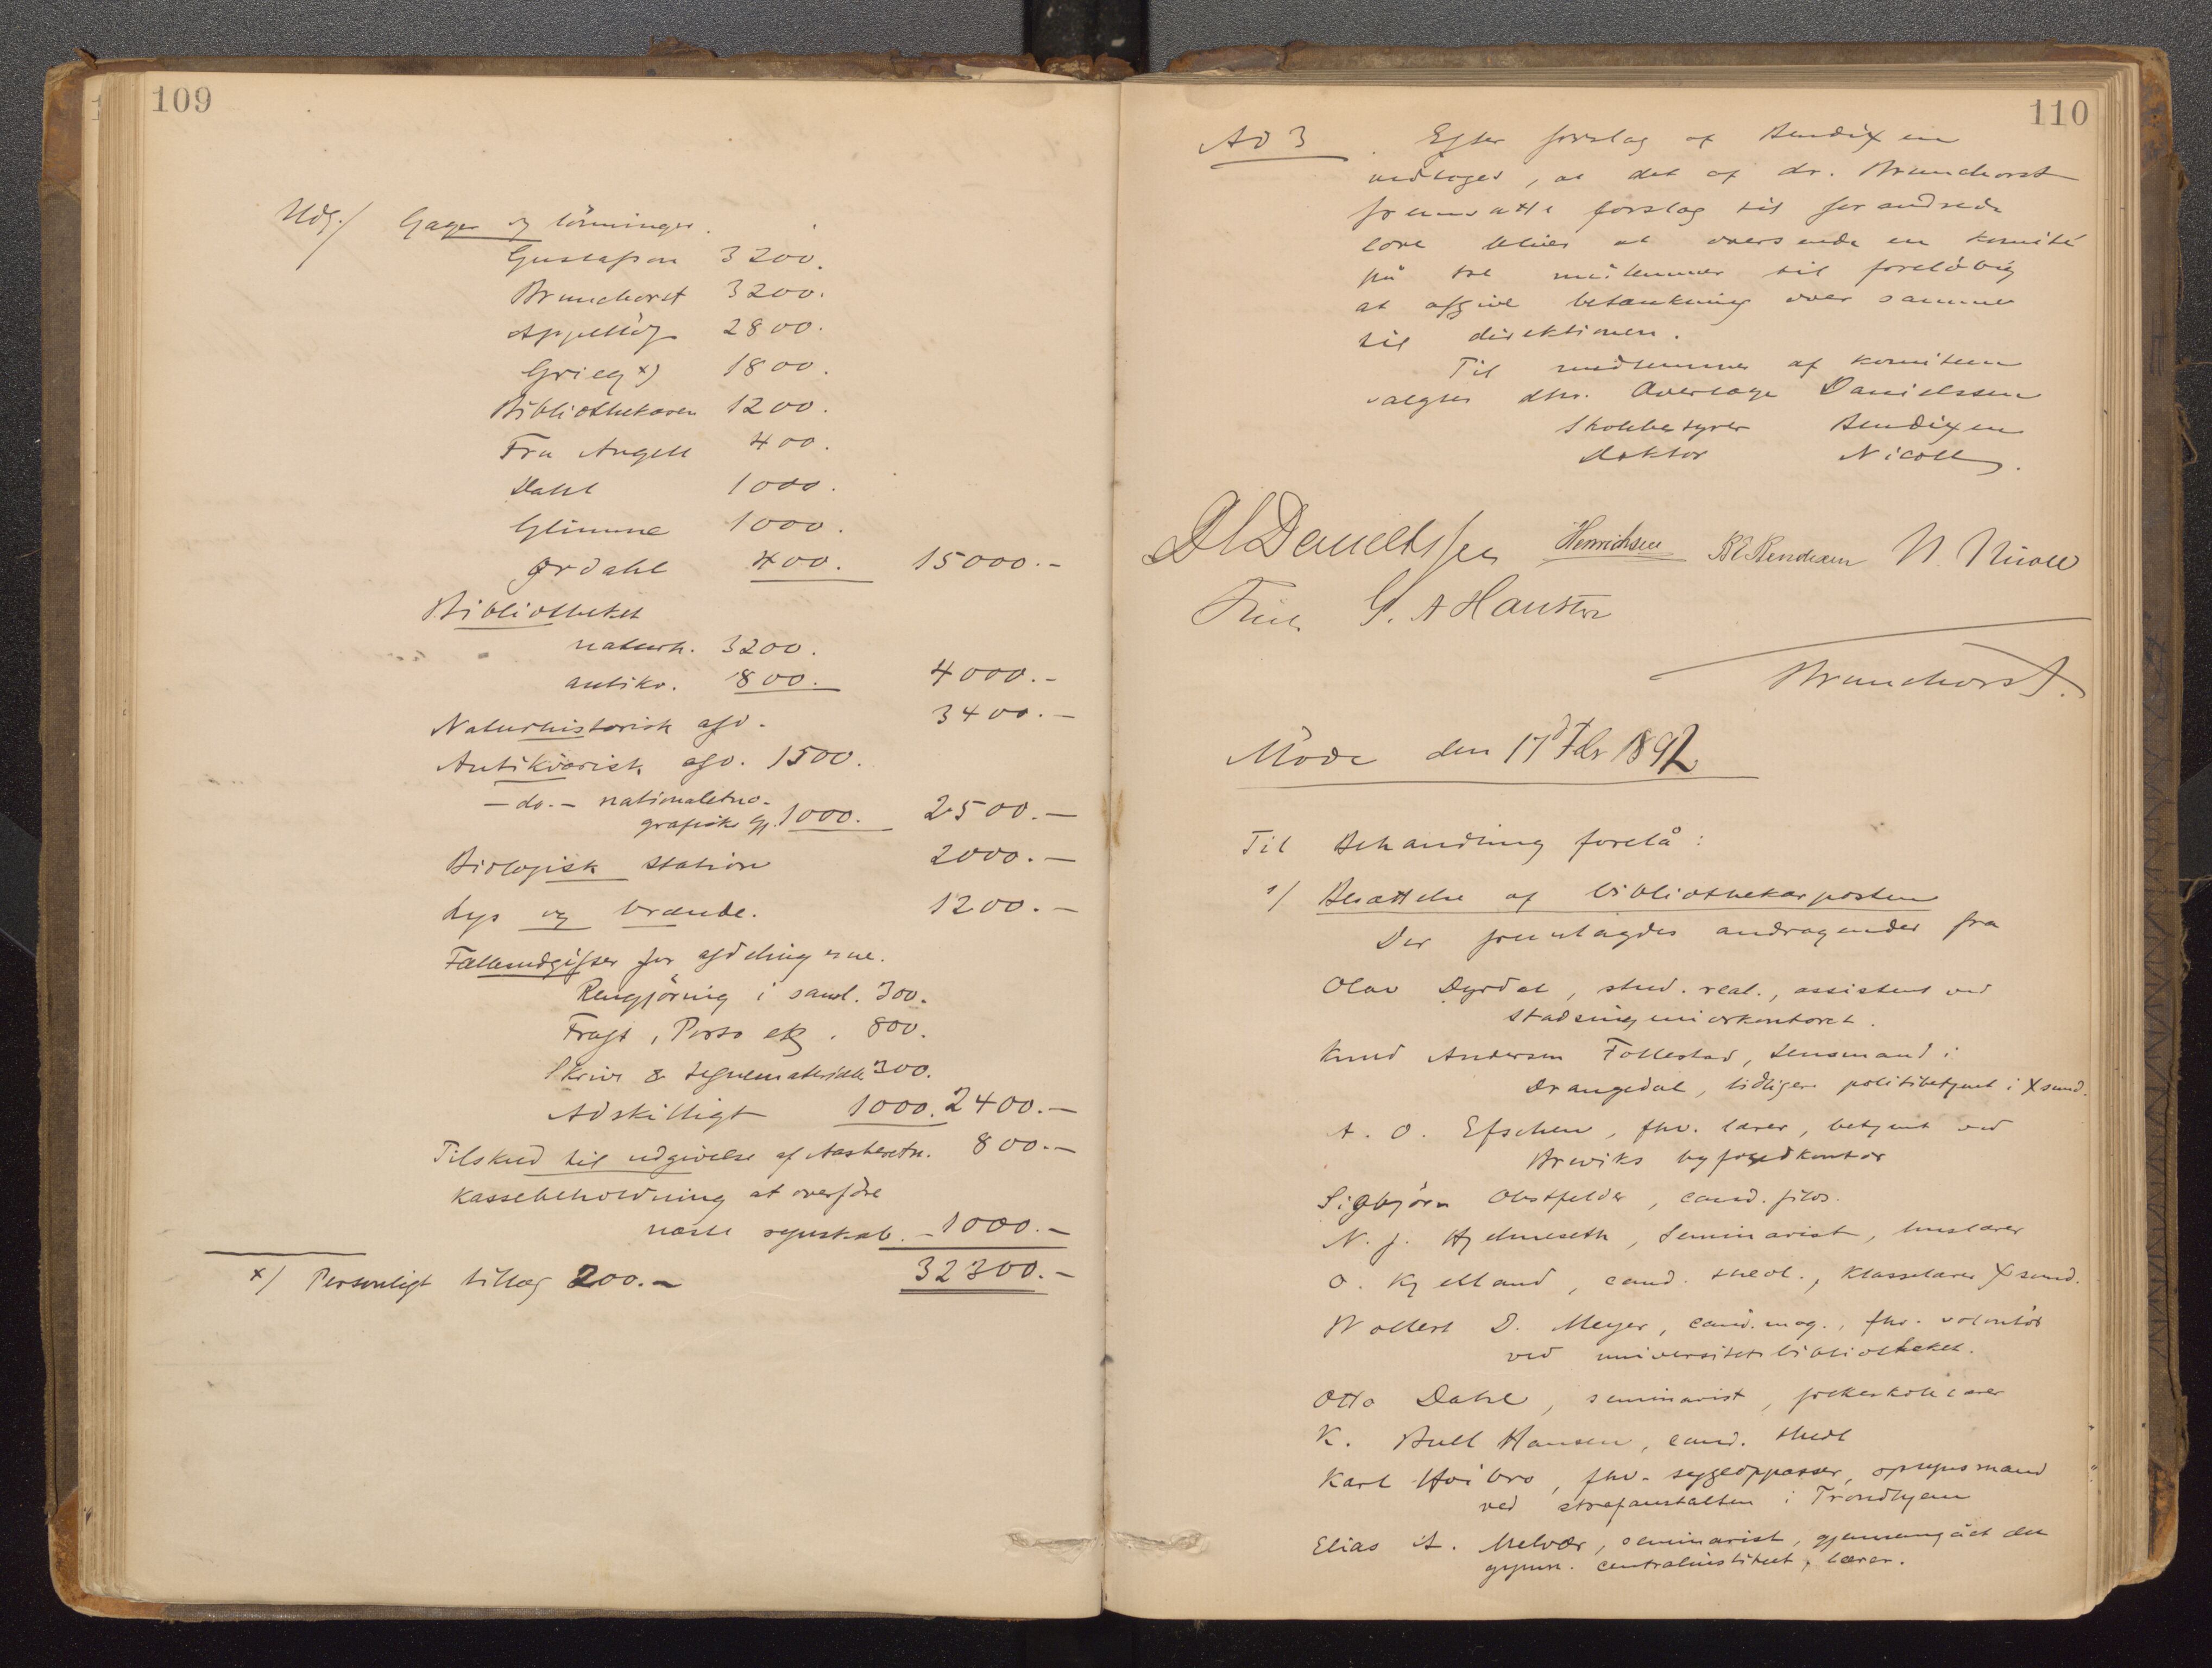 109
Udg./ Gager og lönninger.
Gustafson 3200.
Brunchorst 3200.
Appellöf 2800.
Grieg x) 1800.
Bibliothekaren 1200.
Fru Angell 400.
Dahl 1000.
Glimme 1000.
Ørdahl 400. 15000.-
Bibliotheket
naturh. 3200.
antikv. 800. 4000.-
Naturhistorisk afd. 3400.-
Antikvarisk afd. 1500.
- do. - nationaletno-
grafisk Gj. 1000. 2500.-
Biologisk station 2000.-
Lys og brænde. 1200.-
Fællesudgifter for afdelingerne.
Rengjöring i saml. 300.
Fragt, Porto etc. 800.
Skrive & tegnemateriale 300.
Adskilligt 1000. 2400.-
Tilskud til udgivelse af Aarsberetn. 800.-
Kassebeholdning at overföre
næste regnskab. - 1000.-
32300.-
x) Personligt tillæg 200.-
110
Ad 3 Efter forslag af Bendixen
vedtoges, at det af dr. Brunchorst
fremsatte forslag til forandrede
love bliver at oversende en komité
på tre medlemmer til foreløbig
at afgive betænkning over samme
til direktionen.
Til medlemmer af komiteen
valgtes dhr. Overlæge Danielssen
Skolebestyrer Bendixen
Doktor Nicoll.
D C Danielssen Henrichsen B E Bendixen N. Nicoll
Friele G. A Hansen
Brunchorst.
Möde den 17d Febr 1892
Til Behandling forelå:
1/ Besættelse af bibliothekarposten
Der fremlagdes andragender fra
Olav Dyrdal, stud. real., assistent ved
stadsingeniörkontoret.
Knud Andersen Follestad, lensmand i
Drangedal, tidligere politibetjent i Xsund.
A. O. Efschen, fhv. lærer, betjent ved
Breviks byfogedkontor
Sigbjörn Obstfelder, cand. filos.
N. J. Hjelmeseth, Seminarist, huslærer
O. Kjelland, cand. theol., Klasselærer Xsund.
Wollert D. Meyer, cand. mag., fhv. volontör
ved universitetsbibliotheket.
Otto Dahl, seminarist, folkeskolelærer
K. Bull Hansen, cand. theol
Karl Hvibro, fhv. sygeoppasser, opsynsmand
ved strafanstalten i Trondhjem
Elias A. Melvær, seminarist, gjennemgået den
gymn. centralinstitut, lærer.